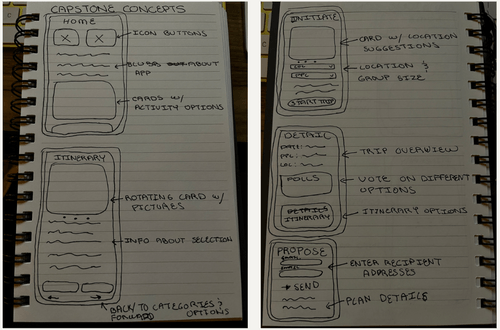 CAPSTONE CONCEPTS
HOME
ICON BUTTONS
BLURB ABOUT
APP
CARDS W/
ACTIVITY OPTIONS
ITINERARY
ROTATING CARD W/
PICTURES
INFO ABOUT SELECTION
BACK TO CATEGORIES &
FORWARD OPTIONS
INITIATE
CARD W/ LOCATION
SUGGESTIONS
LOCATION &
GROUP SIZE
LOC
PPL
START TRIP
DETAIL
DATE:
PPL:
LOC:
TRIP OVERVIEW
POLLS
VOTE ON DIFFERENT
OPTIONS
DETAILS
ITINERARY
ITINERARY OPTIONS
PROPOSE
ENTER RECIPIENT
ADDRESSES
SEND
PLAN DETAILS